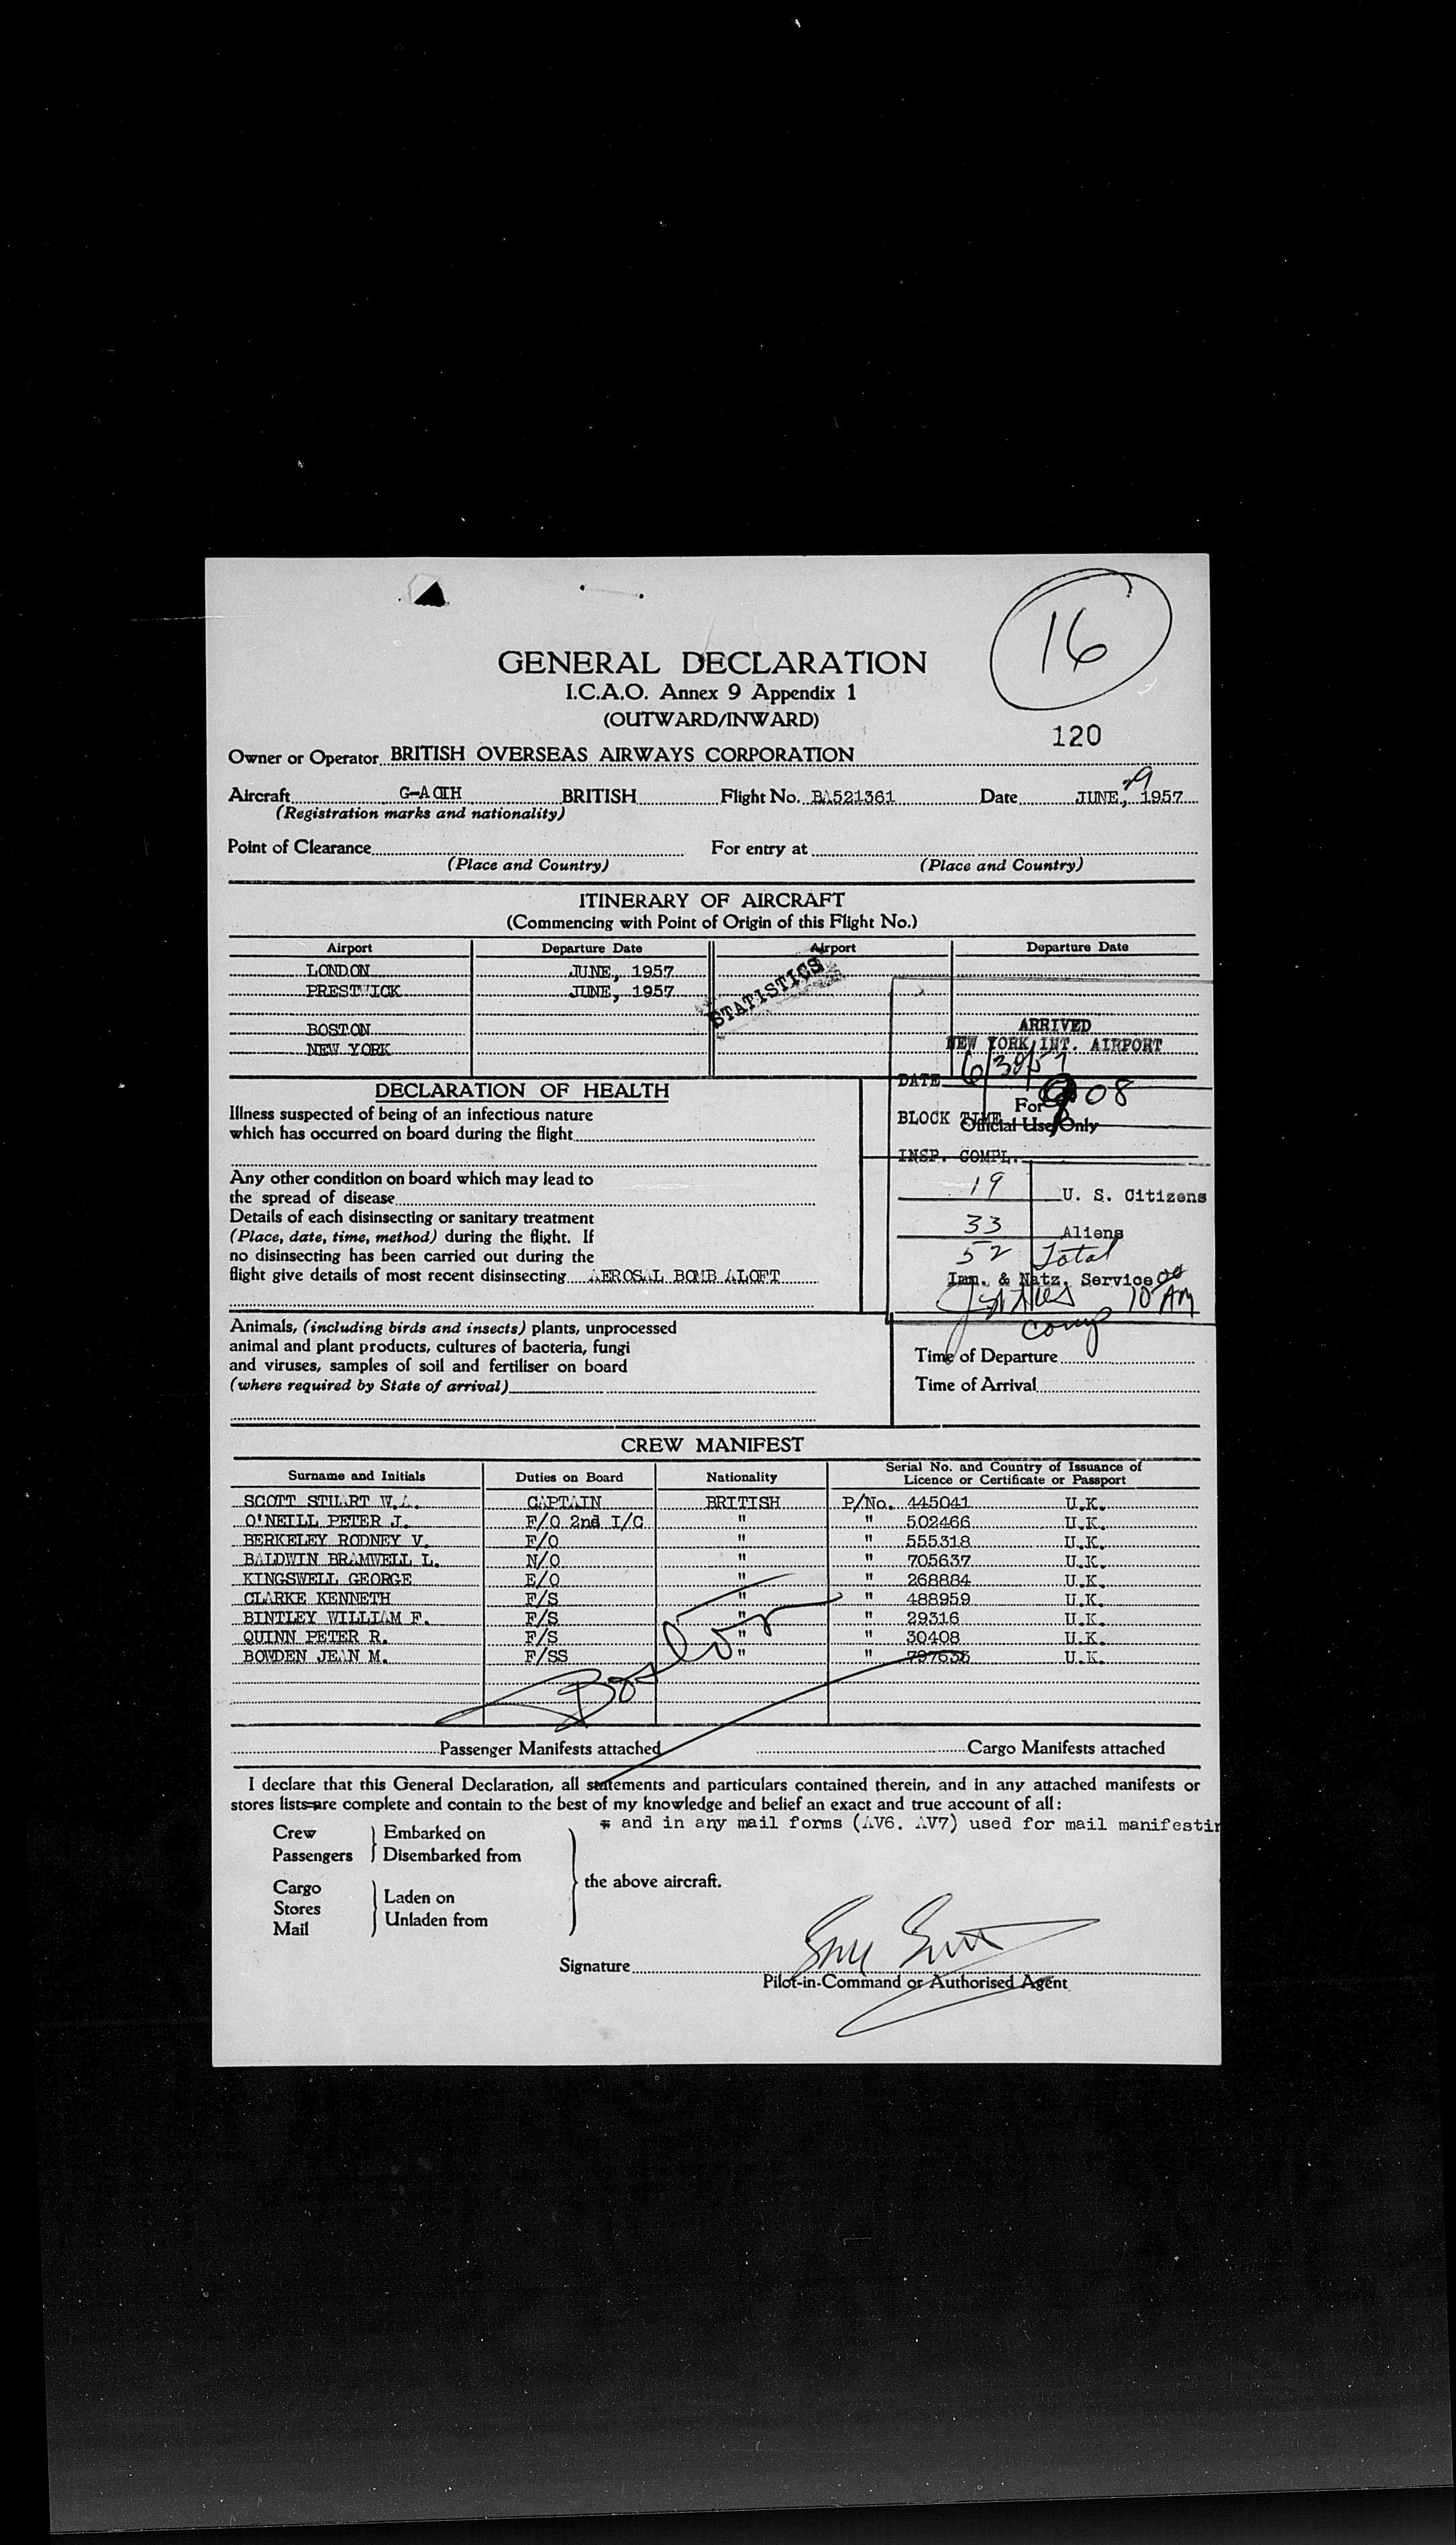 16
GENERAL DECLARATION
I.C.A.O. Annex 9 Appendix 1
(OUTWARD/INWARD)
120
Owner or Operator BRITISH OVERSEAS AIRWAYS CORPORATION
29
Aircraft BRITISH Flight No. BA521361 Date JUNE, 1957
(Registration marks and nationality)
Point of Clearance For entry at
(Place and Country) (Place and Country)
ITINERARY OF AIRCRAFT
(Commencing with Point of Origin of this Flight No.)
Airport Departure Date Airport Departure Date
LONDON JUNE, 1957
PRESTWICK JUNE, 1957
STATISTICS
BOSTON
NEW YORK
ARRIVED
NEW YORK INT. AIRPORT
DATE 6/30/57
BLOCK TIME 908
For
Official Use Only
INSP. COMPL.
19 U. S. Citizens
33 Aliens
52 Total
Imm. & Natz. Service
10 AM
Comp
DECLARATION OF HEALTH
Illness suspected of being of an infectious nature
which has occurred on board during the flight
Any other condition on board which may lead to
the spread of disease
Details of each disinsecting or sanitary treatment
(Place, date, time, method) during the flight. If
no disinsecting has been carried out during the
flight give details of most recent disinsecting AEROSAL BOMB ALOFT
Animals, (including birds and insects) plants, unprocessed
animal and plant products, cultures of bacteria, fungi
and viruses, samples of soil and fertiliser on board
(where required by State of arrival)
Time of Departure
Time of Arrival
CREW MANIFEST
Surname and Initials Duties on Board Nationality Serial No. and Country of Issuance of
Licence or Certificate or Passport
SCOTT STUART W.A. CAPTAIN BRITISH P/No. 445041 U.K.
O'NEILL PETER J. F/O 2nd I/C " " 502466 U.K.
BERKELEY RODNEY V. F/O " " 555318 U.K.
BALDWIN BRAMWELL L. N/O " " 705637 U.K.
KINGSWELL GEORGE E/O " " 268884 U.K.
CLARKE KENNETH F/S " " 488959 U.K.
BINTLEY WILLIAM F. F/S " " 29316 U.K.
QUINN PETER R. F/S " " 30408 U.K.
BOWDEN JEAN M. F/SS " " 797636 U.K.
Boston
Passenger Manifests attached Cargo Manifests attached
I declare that this General Declaration, all statements and particulars contained therein, and in any attached manifests or
stores lists are complete and contain to the best of my knowledge and belief an exact and true account of all:
* and in any mail forms (AV6. AV7) used for mail manifestin
Crew Embarked on
Passengers Disembarked from
Cargo
Stores
Mail
Laden on
Unladen from
the above aircraft.
Signature
Pilot-in-Command or Authorised Agent